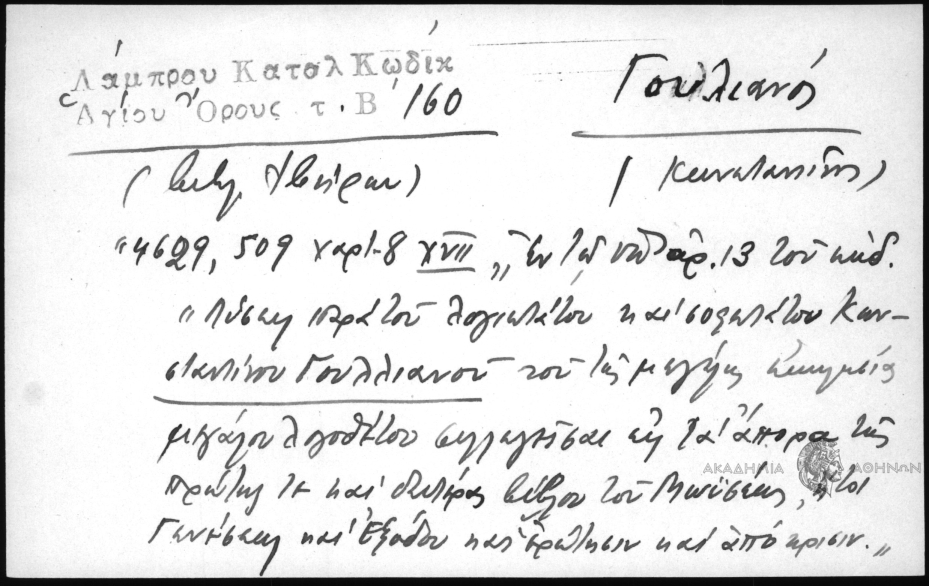 Λάμπρου Κατσλ Κώδικ
Ἁγίου Ὄρους τ. Β 160
Γουλλιανός
(βιβλ. Ἰβήρων)
(Κωνσταντῖνος)
"4629, 509 χαρτ. 8 XVII „ Ἐν τῷ ὑπ' ἀρ. 13 τοῦ κώδ.
" Λύσεις παρὰ τοῦ λογιωτάτου καὶ σοφωτάτου Κων-
σταντίνου Γουλλιανοῦ τοῦ τῆς μεγάλης ἐκκλησίας
μεγάλου λογοθέτου συλλεγεῖσαι εἰς τὰ ἄπορα τῆς
πρώτης τε καὶ δευτέρας βίβλου τοῦ Μωϋσέως, ἤτοι
Γενέσεως καὶ Ἐξόδου κατ' ἐρώτησιν καὶ ἀπόκρισιν. „
ΑΚΑΔΗΜΙΑ ΑΘΗΝΩΝ